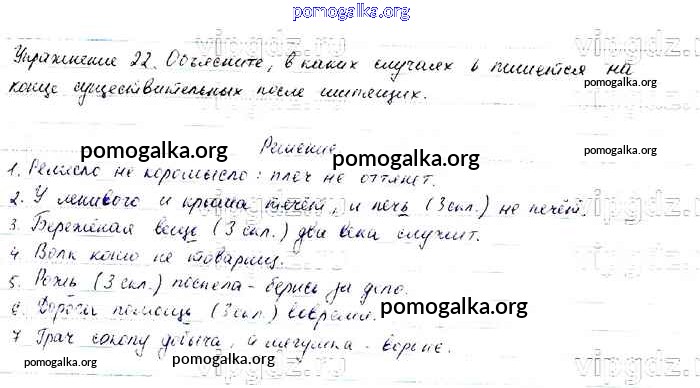 pomogalka.org
vipgdz.ru
Упражнение 22. Объясните, в каких случаях ь пишется на
pomogalka.org
конце существительных после шипящих.
Решение
pomogalka.org
pomogalka.org
1. Ремесло не коромысло: плеч не оттянет.
2. У ленивого и крыша течёт, и печь (3 скл.) не печёт.
3. Бережёная вещь (3 скл.) два века служит.
4. Волк коню не товарищ.
5. Рожь (3 скл.) поспела - берись за дело.
6. Дорога помощь (3 скл.) вовремя.
pomogalka.org
7. Грач соколу добыча, а лягушка - вороне.
pomogalka.org
pomogalka.org
pomogalka.org